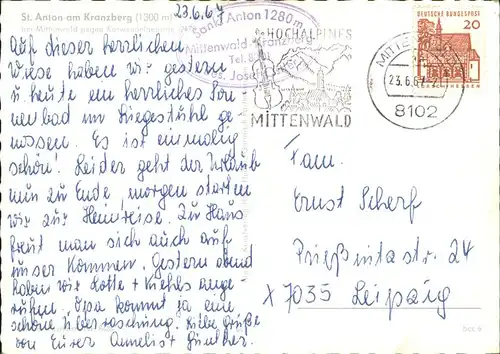 St. Anton am Kranzberg (1300 m)
bei Mittenwald gegen Karwendel
23.6.67
Sankt Anton 1280m
Mittenwald-Kranzberg
Tel. 8
Bes. Josef
HOCHALPINES
MITTENWALD
MITTENWALD
23.6.67
8102
DEUTSCHE BUNDESPOST
20
LORSCH HESSEN
Auf dieser herrlichen
Wiese haben wir gestern
u heute ein herrliches Son-
nenbad im Liegestuhl ge-
nossen. Es ist einmalig
schön! Leider geht der Urlaub
nun zu Ende, morgen starten
wir zur Heimreise. Zu Haus
freut man sich auch auf
unser Kommen. Gestern abend
haben wir Lotte + Kiehles ange-
rufen. Opa kommt ja eine
schöne Überraschung. Liebe Grüße
von Eurer Annelis + Günther.
Fam.
Ernst Scherf
Prießnitzstr. 24
X 7035 Leipzig